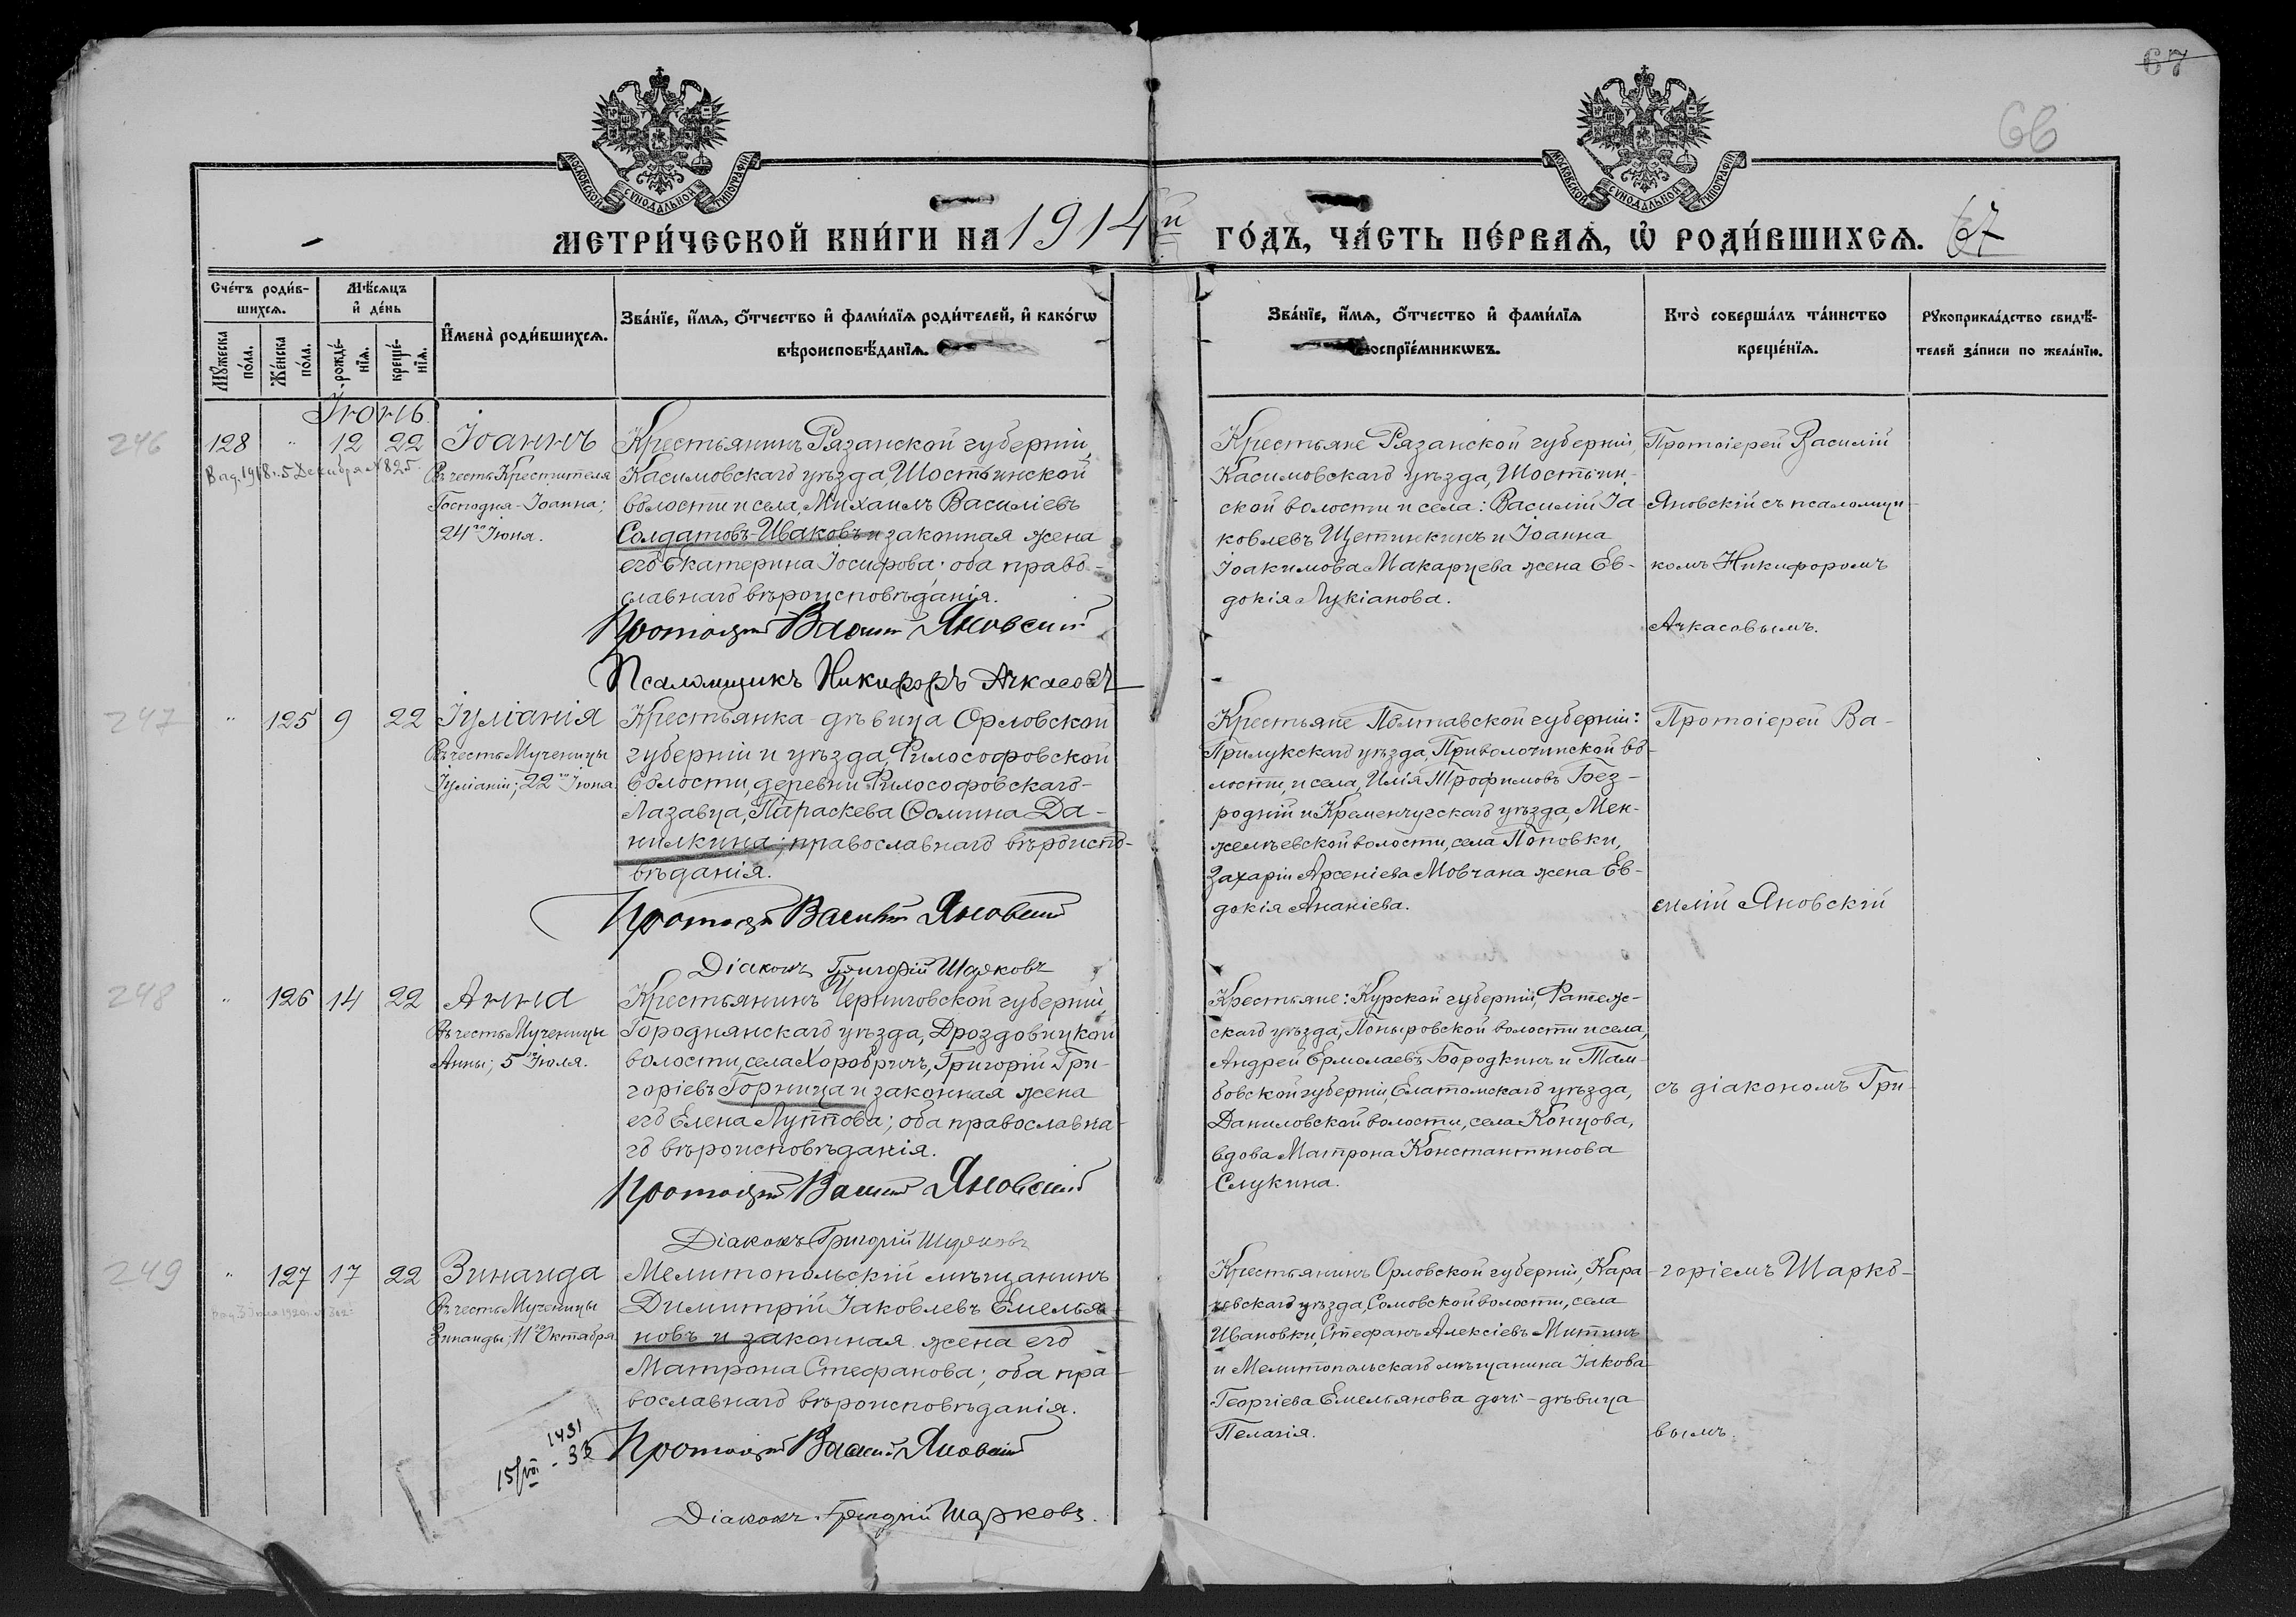 67
66
МОСКОВСКОЙ СѴНОДАЛЬНОЙ ТИПОГРАФІИ
МОСКОВСКОЙ СѴНОДАЛЬНОЙ ТИПОГРАФІИ
МЕТРИ́ЧЕСКОЙ КНИ́ГИ НА 1914й ГО́ДЪ, ЧА́СТЬ ПЕ́РВАѦ, Ѽ РОДИ́ВШИХСѦ. 67
Сче́тъ роди́в-
шихсѧ.
Мѣ́сѧцъ
и҆ де́нь
Мꙋ́жеска
по́ла.
Же́нска
по́ла.
рожде́-
нїѧ.
креще́-
нїѧ.
И҆мена̀ роди́вшихсѧ.
Зва́нїе, и҆́мѧ, ѻ҆́тчество и҆ фами́лїѧ роди́телей, и҆ како́гѡ
вѣроисповѣ́данїѧ.
Зва́нїе, и҆́мѧ, ѻ҆́тчество и҆ фами́лїѧ
воспрїе́мникѡвъ.
Кто̀ соверша́лъ та́инство
креще́нїѧ.
Рꙋкоприкла́дство свидѣ́-
телей за́писи по жела́нїю.
Іюнь.
246
128 " 12 22
Выд. 1918 г. 5 Декабря № 825.
Іоаннъ
Въ честь Крестителя
Господня Іоанна;
24го Іюня.
Крестьянинъ Рязанской губерніи,
Касимовскаго уѣзда, Шостьинской
волости и села, Михаилъ Василіевъ
Солдатовъ-Иваковъ и законная жена
его Екатерина Іосифова; оба право-
славнаго вѣроисповѣданія.
Протоіерей Василій Яновскій
Псаломщикъ Никифоръ Ачкасовъ
Крестьяне Рязанской губерніи,
Касимовскаго уѣзда, Шостьин-
ской волости и села: Василій Іа
ковлевъ Щетинкинъ и Іоанна
Іоакимова Макарцева жена Ев-
докія Лукіанова.
Протоіерей Василій
Яновскій съ псаломщи-
комъ Никифоромъ
Ачкасовымъ.
247
" 125 9 22
Іуліанія
Въ честь Мученицы
Іуліаніи; 22го Іюня.
Крестьянка-дѣвица Орловской
губерніи и уѣзда, Философовской
волости, деревни Философовскаго-
Лазавца, Параскева Ѳомина Да-
нилкина; православнаго вѣроиспо-
вѣданія.
Протоіерей Василій Яновскій
Діаконъ Григорій Шарковъ
Крестьяне Полтавской губерніи:
Прилукскаго уѣзда, Приволочинской во-
лости, и села, Илія Трофимовъ Без-
родній и Кременчугскаго уѣзда, Ман-
желѣевской волости, села Поповки,
Захаріи Арсеніева Мовчана жена Ев-
докія Ананіева.
Протоіерей Ва-
силій Яновскій
248
" 126 14 22
Анна
Въ честь Мученицы
Анны; 5го Іюля.
Крестьянинъ Черниговской губерніи,
Городнянскаго уѣзда, Дроздовицкой
волости, села Хоробричъ, Григорій Гри-
горіевъ Горница и законная жена
его Елена Луппова; оба православна-
го вѣроисповѣданія.
Протоіерей Василій Яновскій
Діаконъ Григорій Шарковъ
Крестьяне: Курской губерніи, Фатеж-
скаго уѣзда, Поныровской волости и села,
Андрей Ермолаевъ Бородкинъ и Там-
бовской губерніи, Елатомскаго уѣзда,
Даниловской волости, села Концова,
вдова Матрона Константинова
Слукина.
съ діакономъ Гри-
249
" 127 17 22
Зинаида
Въ честь Мученицы
Зинаиды; 11го Октября.
Мелитопольскій мѣщанинъ
Димитрій Іаковлевъ Емелья-
новъ и законная жена его
Матрона Стефанова; оба пра-
вославнаго вѣроисповѣданія.
1431
15/VII - 33
Протоіерей Василій Яновскій
Діаконъ Григорій Шарковъ.
Крестьянинъ Орловской губерніи, Кара-
чевскаго уѣзда, Сомовской волости, села
Ивановки, Стефанъ Алексіевъ Митинъ
и Мелитопольскаго мѣщанина Іакова
Георгіева Емельянова дочь-дѣвица
Пелагія.
горіемъ Шарко-
вымъ.